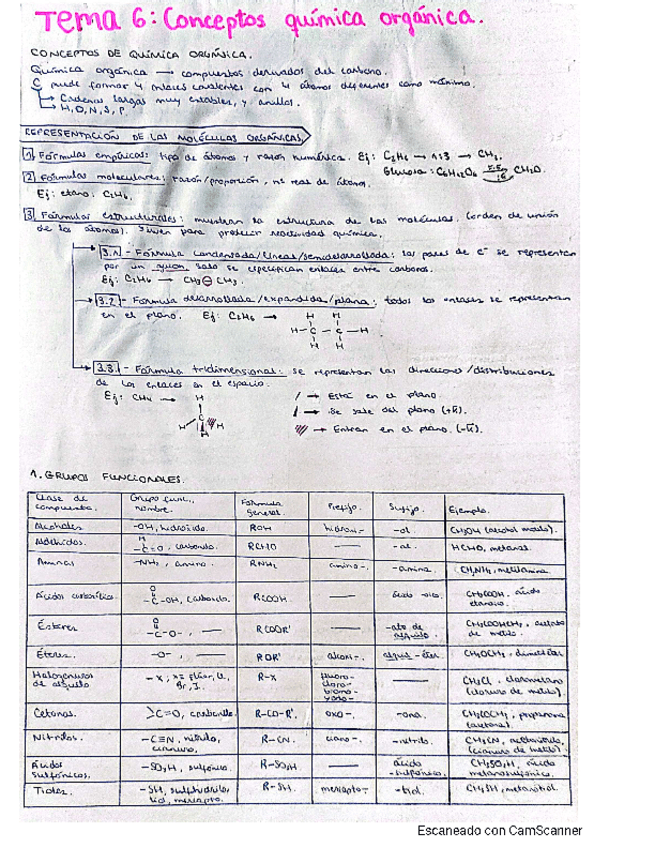 Tema 6: Conceptos química orgánica.
CONCEPTOS DE QUÍMICA ORGÁNICA.
Química orgánica → compuestos derivados del carbono.
C puede formar 4 enlaces covalentes con 4 átomos diferentes como máximo.
Cadenas largas muy estables, y anillos.
H, O, N, S, P.
REPRESENTACIÓN DE LAS MOLÉCULAS ORGÁNICAS
1 Fórmulas empíricas: tipo de átomos y razón numérica. Ej: C2H6 → 1:3 → CH3.
Glucosa: C6H12O6 CH2O.
2 Fórmulas moleculares: razón/proporción, nº real de átomos.
Ej: etano. C2H6.
3 Fórmulas estructurales: muestran la estructura de las moléculas. (orden de unión
de los átomos). Sirven para predecir reactividad química.
3.1 - Fórmula condensada/lineal/semidesarrollada: los pares de e- se representan
por un guion. Solo se especifican enlaces entre carbonos.
Ej: C2H6 → CH3-CH3.
3.2 - Fórmula desarrollada/expandida/plana: todos los enlaces se representan
en el plano. Ej: C2H6 →
H H
H-C-C-H
H H
3.3 - Fórmula tridimensional: se representan las direcciones/distribuciones
de los enlaces en el espacio.
Ej: CH4 → H
/ → Está en el plano.
→ Se sale del plano (+).
C
H H H
→ Entran en el plano. (-).
1. GRUPOS FUNCIONALES.
Clase de compuesto. Grupo func., nombre. Fórmula general. Prefijo. Sufijo. Ejemplo.
Alcoholes -OH, hidroxilo. ROH hidroxi-. -ol CH3OH (alcohol metílico).
Aldehídos. H -C=O, carbonilo. RCHO — -al. HCHO, metanal.
Aminas -NH2, amino. RNH2 amino-. -amina. CH3NH2, metilamina.
Ácidos carboxílicos O -C-OH, carboxilo. RCOOH — ácido -oico. CH3COOH, ácido etanoico.
Ésteres O -C-O-, — RCOOR' — -ato de alquilo. CH3COOCH3, acetato de metilo.
Éteres. -O-, — ROR' alcoxi-. alquil -éter. CH3OCH3, dimetil éter
Halogenuros de alquilo -X, X= flúor, Cl, Br, I. R-X fluoro- cloro- bromo- yodo- — CH3Cl, clorometano (cloruro de metilo).
Cetonas. >C=O, carbonilo. R-CO-R'. oxo-. -ona. CH3COCH3, propanona (acetona).
Nitrilos. -C≡N, nitrilo, cianuro. R-CN. ciano-. -nitrilo. CH3CN, acetonitrilo, (cianuro de metilo).
Ácidos sulfónicos. -SO3H, sulfónico. R-SO3H — ácido -sulfónico. CH3SO3H, ácido metanosulfónico.
Tioles. -SH, sulfhidrilo, tiol, mercapto. R-SH. mercapto- -tiol. CH3SH, metanotiol.
Escaneado con CamScanner